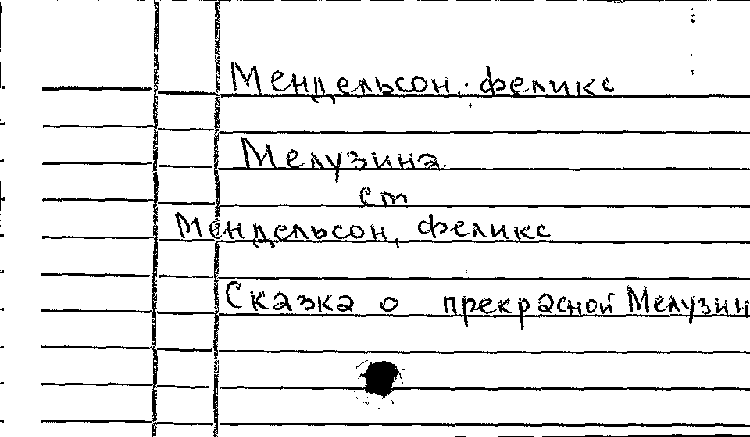 Мендельсон. феликс
Мелузина
ст
Мендельсон, феликс
Сказка о прекрасной Мелузин